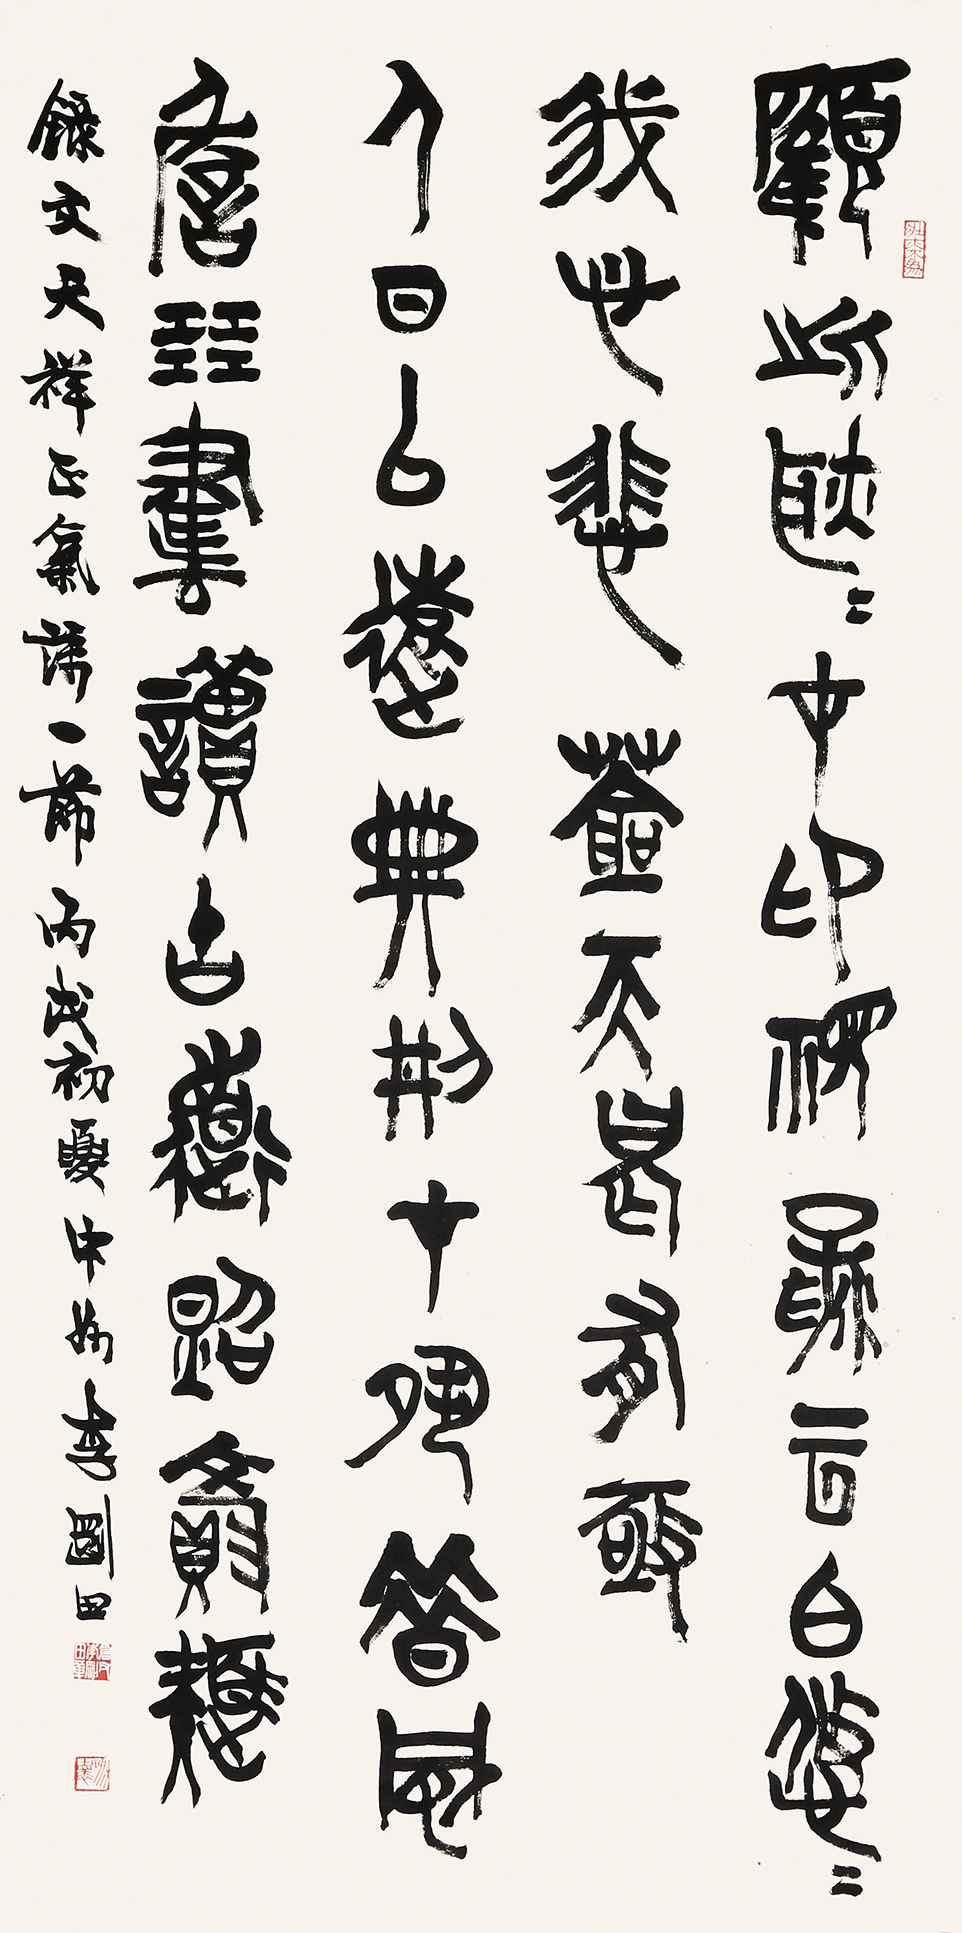 顧此耿＝在卬視浮云白悠＝
我心悲蒼天曷有亟
人日㠯遠典刑在夙昔風
簷展書讀古道照顏色
錄文天祥正氣謌一節丙戌初夏中州李剛田